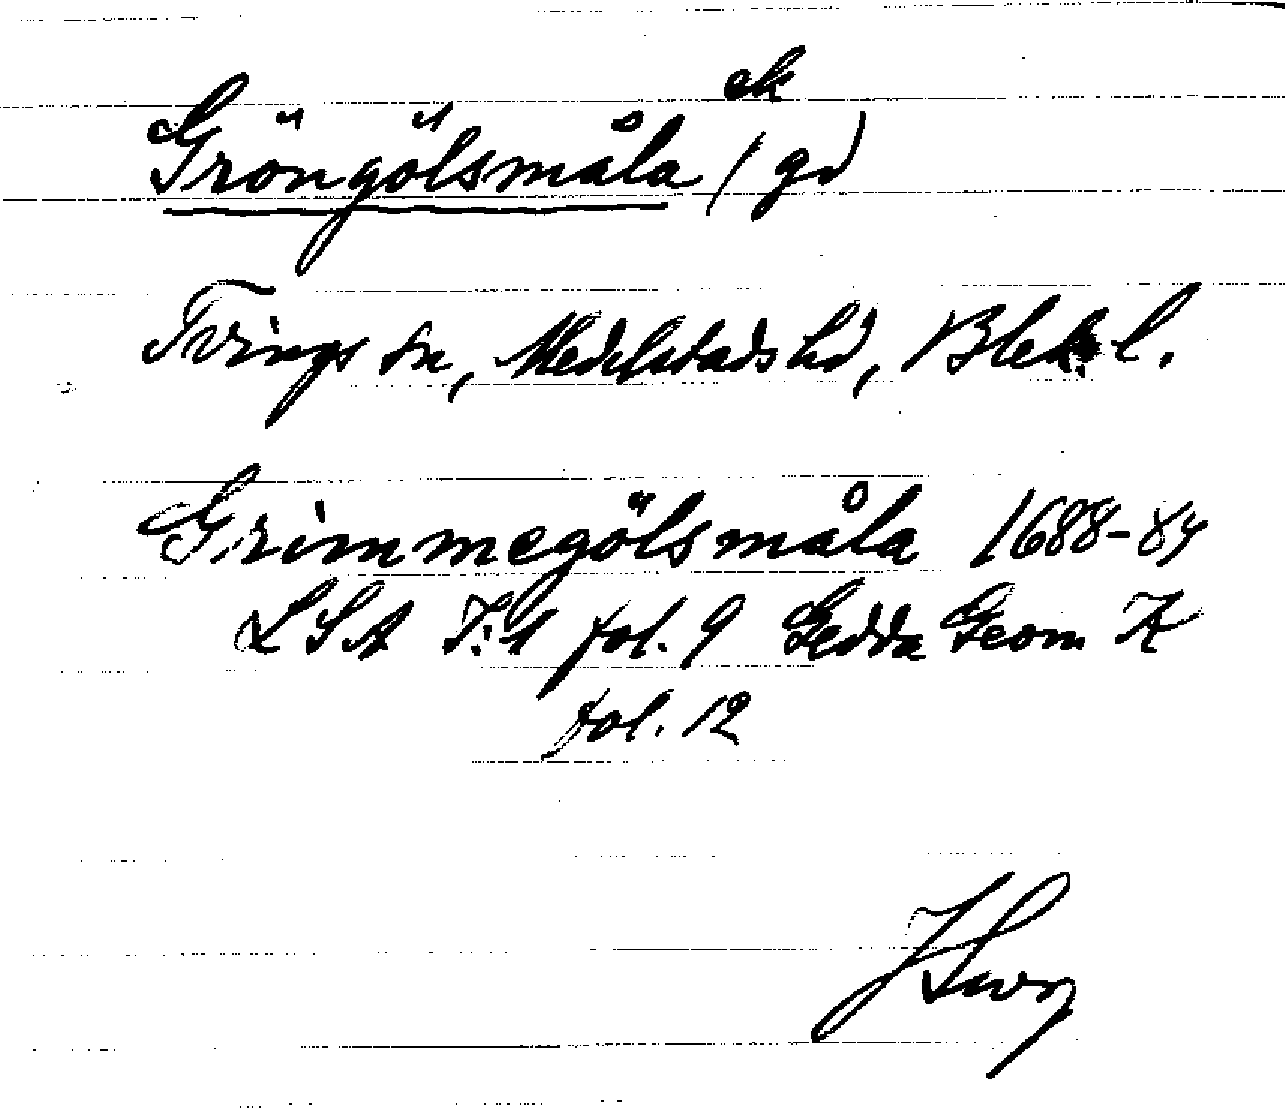 ek
Gröngölsmåla (gd)
Tvings sn, Medelstads hd, Blek. l.
Grimmegölsmåla 1688-84
LSA I:1 fol. 9 Gedda Geom K
fol. 12